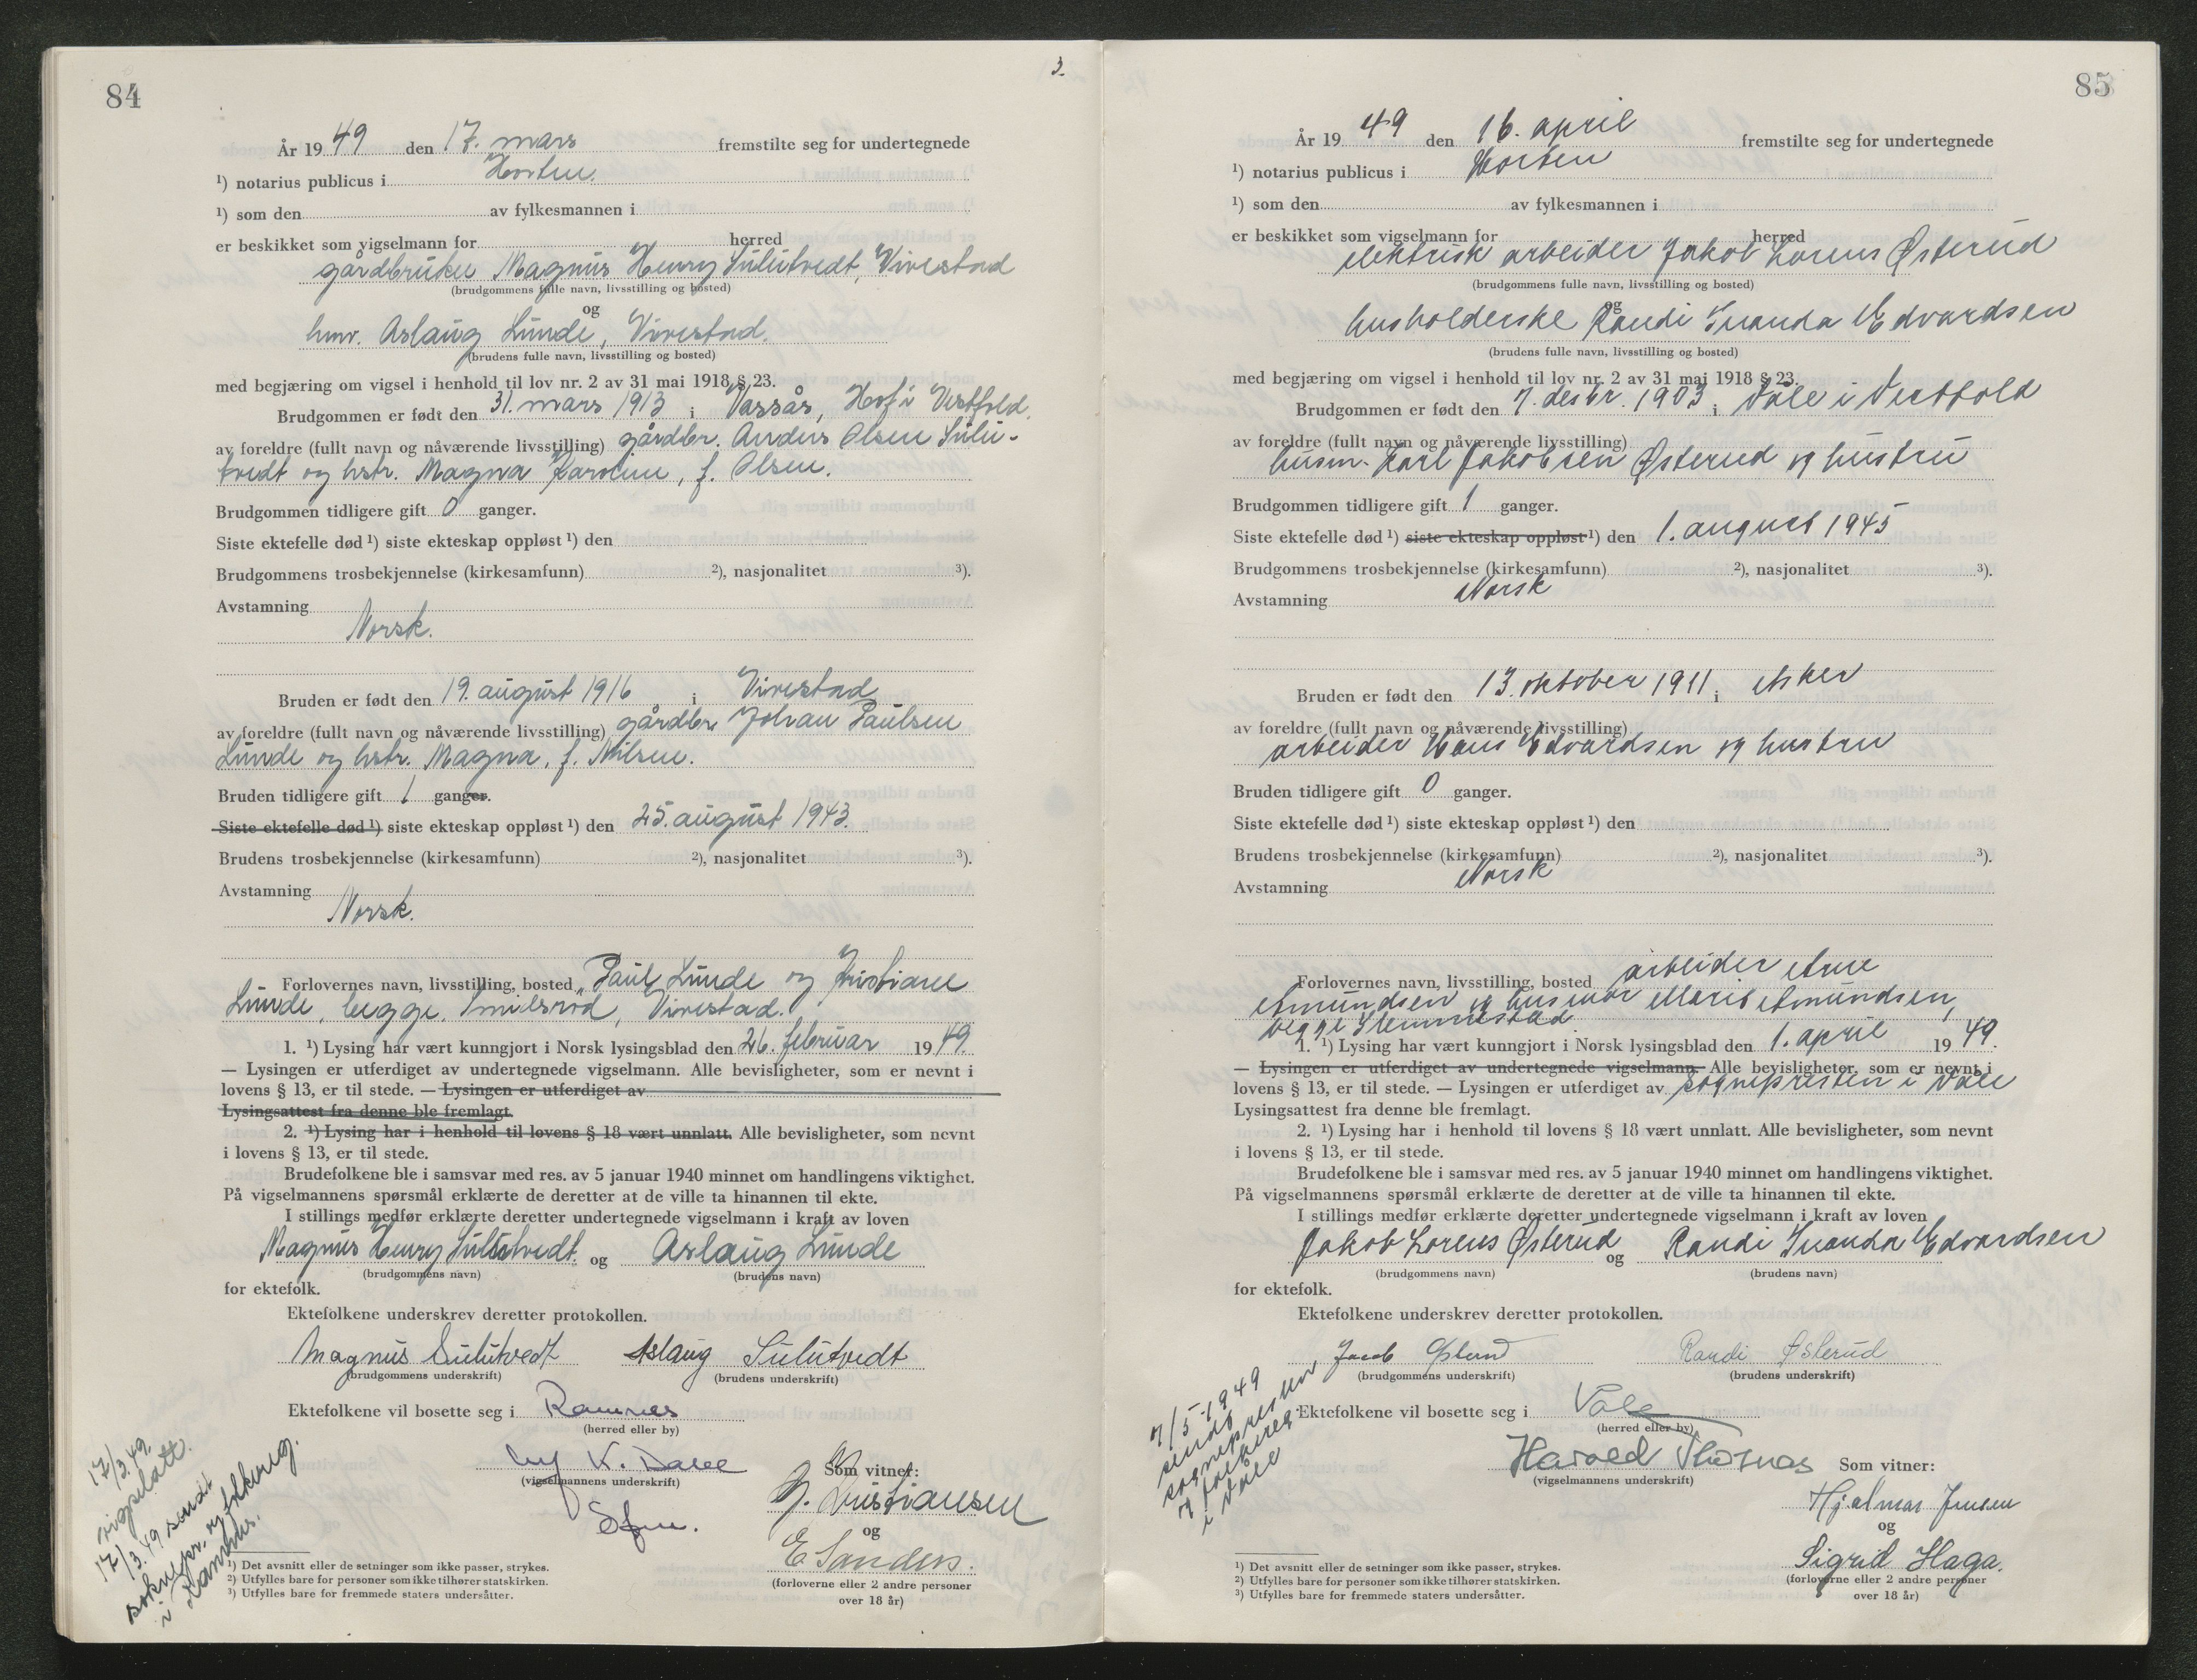 84
3.
År 1949 den 17. mars fremstilte seg for undertegnede
¹) notarius publicus i Horten.
¹) som den av fylkesmannen i
er beskikket som vigselmann for herred
gårdbruker Magnus Henry Sulutvedt, Vivestad
(brudgommens fulle navn, livsstilling og bosted)
og
hmv. Aslaug Lunde, Vivestad.
(brudens fulle navn, livsstilling og bosted)
med begjæring om vigsel i henhold til lov nr. 2 av 31 mai 1918 § 23.
Brudgommen er født den 31. mars 1913 i Vassås, Hof i Vestfold.
av foreldre (fullt navn og nåværende livsstilling) gårdbr. Anders Olsen Sulu-
tvedt og hstr. Magna Karoline, f. Olsen.
Brudgommen tidligere gift 0 ganger.
Siste ektefelle død ¹) siste ekteskap oppløst ¹) den
Brudgommens trosbekjennelse (kirkesamfunn) ²), nasjonalitet ³).
Avstamning
Norsk.
Bruden er født den 19. august 1916 i Vivestad
av foreldre (fullt navn og nåværende livsstilling) gårdbr. Johan Paulsen
Lunde og hstr. Magna, f. Nilsen.
Bruden tidligere gift 1 ganger.
Siste ektefelle død ¹) siste ekteskap oppløst ¹) den 25. august 1943.
Brudens trosbekjennelse (kirkesamfunn) ²), nasjonalitet ³).
Avstamning
Norsk.
Forlovernes navn, livsstilling, bosted Paul Lunde og Kristiane
Lunde, begge, Smilsrød, Vivestad.
1. ¹) Lysing har vært kunngjort i Norsk lysingsblad den 26. februar 1949.
— Lysingen er utferdiget av undertegnede vigselmann. Alle bevisligheter, som er nevnt i
lovens § 13, er til stede. — Lysingen er utferdiget av
Lysingsattest fra denne ble fremlagt.
2. ¹) Lysing har i henhold til lovens § 18 vært unnlatt. Alle bevisligheter, som nevnt
i lovens § 13, er til stede.
Brudefolkene ble i samsvar med res. av 5 januar 1940 minnet om handlingens viktighet.
På vigselmannens spørsmål erklærte de deretter at de ville ta hinannen til ekte.
I stillings medfør erklærte deretter undertegnede vigselmann i kraft av loven
Magnus Henry Sulutvedt og Aslaug Lunde
(brudgommens navn) (brudens navn)
for ektefolk.
Ektefolkene underskrev deretter protokollen.
Magnus Sulutvedt Aslaug Sulutvedt
(brudgommens underskrift) (brudens underskrift)
Ektefolkene vil bosette seg i Ramnes
(herred eller by)
K. Dalee
(vigselmannens underskrift) Som vitner:
Kristiansen
og
E. Sanders.
(forloverne eller 2 andre personer
over 18 år)
17/3.49.
vigselatt.
17/3.49 sendt
soknepr. og folkereg.
i Ramnes.
¹) Det avsnitt eller de setninger som ikke passer, strykes.
²) Utfylles bare for personer som ikke tilhører statskirken.
³) Utfylles bare for fremmede staters undersåtter.
85
År 1949 den 16. april fremstilte seg for undertegnede
¹) notarius publicus i Horten
¹) som den av fylkesmannen i
er beskikket som vigselmann for herred
elektrisk arbeider Jakob Lorens Østerud
(brudgommens fulle navn, livsstilling og bosted)
og
husholderske Randi Ivanda Edvardsen
(brudens fulle navn, livsstilling og bosted)
med begjæring om vigsel i henhold til lov nr. 2 av 31 mai 1918 § 23.
Brudgommen er født den 7. desbr. 1903 i Våle i Vestfold
av foreldre (fullt navn og nåværende livsstilling)
husm. Karl Jakobsen Østerud og hustru
Brudgommen tidligere gift 1 ganger.
Siste ektefelle død ¹) siste ekteskap oppløst ¹) den 1. august 1945
Brudgommens trosbekjennelse (kirkesamfunn) ²), nasjonalitet ³).
Avstamning Norsk
Bruden er født den 13. oktober 1911 i Asker
av foreldre (fullt navn og nåværende livsstilling)
arbeider Hans Edvardsen og hustru
Bruden tidligere gift 0 ganger.
Siste ektefelle død ¹) siste ekteskap oppløst ¹) den
Brudens trosbekjennelse (kirkesamfunn) ²), nasjonalitet ³).
Avstamning Norsk
Forlovernes navn, livsstilling, bosted arbeider Arne
Amundsen og husmor Marit Amundsen,
begge Slemmestad
1. ¹) Lysing har vært kunngjort i Norsk lysingsblad den 1. april 1949.
— Lysingen er utferdiget av undertegnede vigselmann. Alle bevisligheter, som er nevnt i
lovens § 13, er til stede. — Lysingen er utferdiget av sognepresten i Våle
Lysingsattest fra denne ble fremlagt.
2. ¹) Lysing har i henhold til lovens § 18 vært unnlatt. Alle bevisligheter, som nevnt
i lovens § 13, er til stede.
Brudefolkene ble i samsvar med res. av 5 januar 1940 minnet om handlingens viktighet.
På vigselmannens spørsmål erklærte de deretter at de ville ta hinannen til ekte.
I stillings medfør erklærte deretter undertegnede vigselmann i kraft av loven
Jakob Lorens Østerud og Randi Ivanda Edvardsen
(brudgommens navn) (brudens navn)
for ektefolk.
Ektefolkene underskrev deretter protokollen.
Jacob Østerud Randi Østerud
(brudgommens underskrift) (brudens underskrift)
Ektefolkene vil bosette seg i Våle
(herred eller by)
Harald Thomas
(vigselmannens underskrift) Som vitner:
Hjalmar Jensen
og
Sigrid Haga.
(forloverne eller 2 andre personer
over 18 år)
7/5-1949
sendt
sognepresten
og folkereg.
i Våle
¹) Det avsnitt eller de setninger som ikke passer, strykes.
²) Utfylles bare for personer som ikke tilhører statskirken.
³) Utfylles bare for fremmede staters undersåtter.